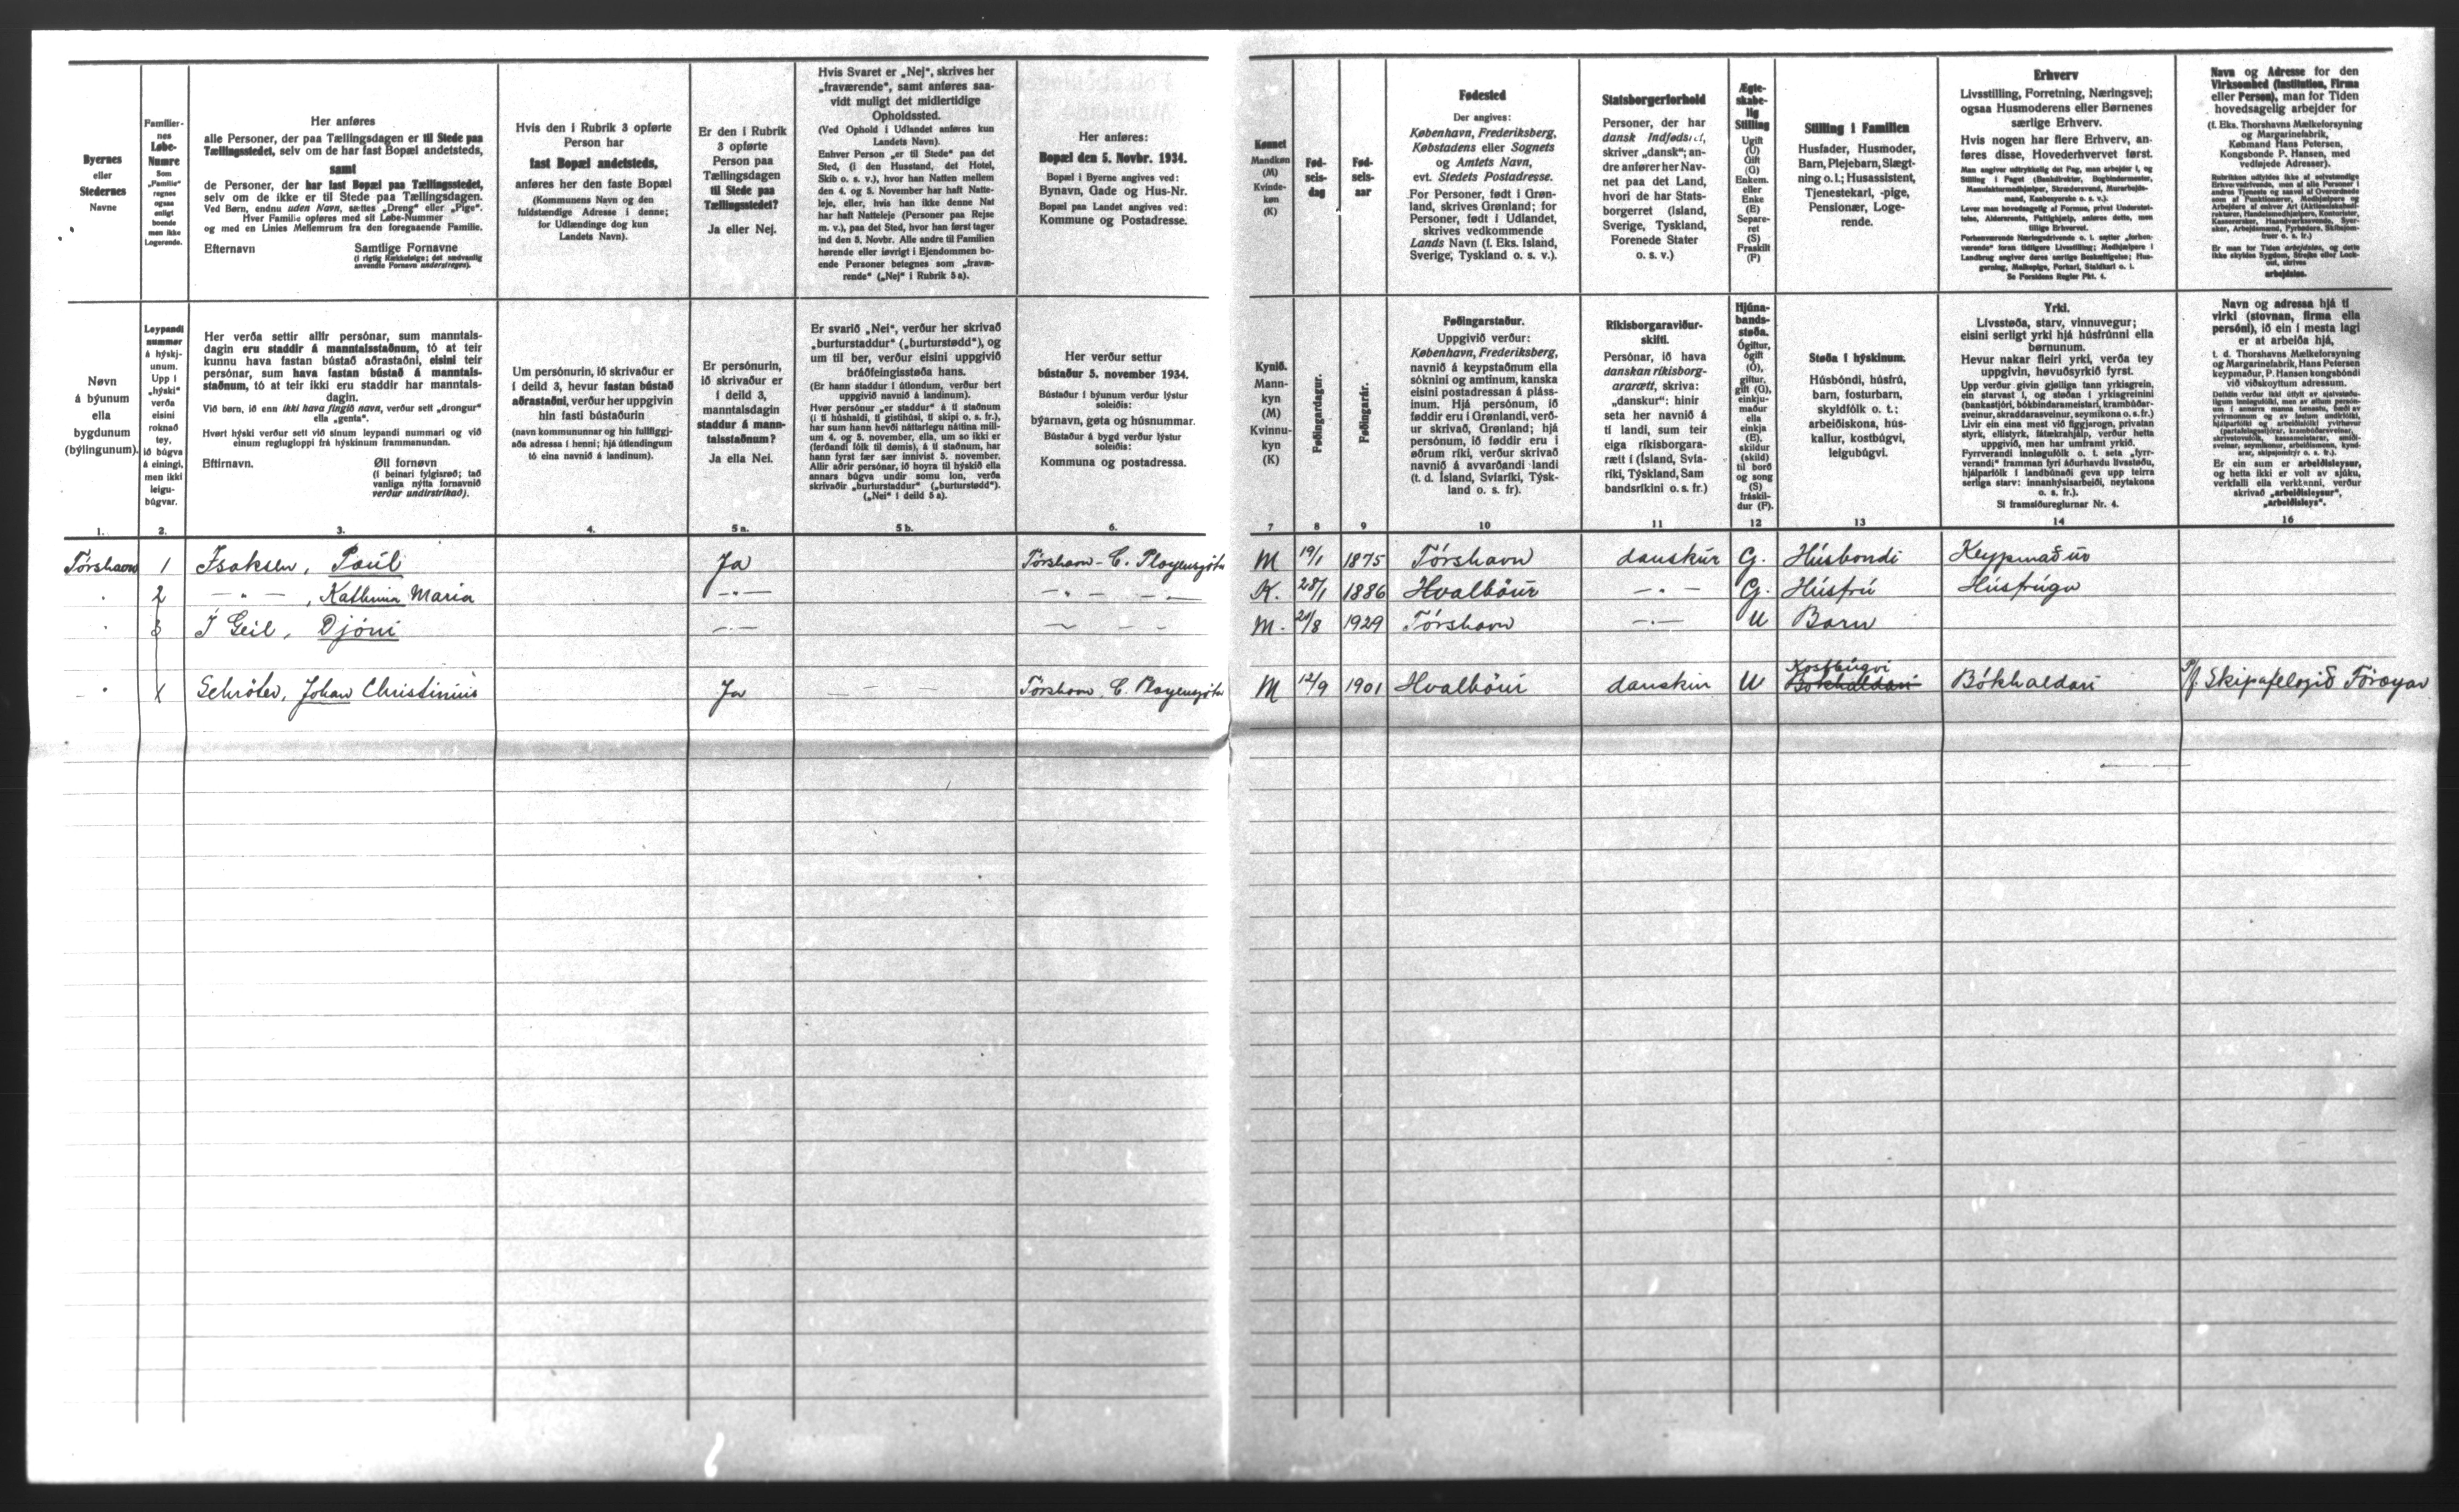 Byernes
eller
Stedernes
Navne
Familier-
nes
Løbe-
Numre
Som
„Familie“
regnes
ogsaa
enligt
boende
men ikke
Logerende.
Her anføres
alle Personer, der paa Tællingsdagen er til Stede paa
Tællingsstedet, selv om de har fast Bopæl andetsteds,
samt
de Personer, der har fast Bopæl paa Tællingsstedet,
selv om de ikke er til Stede paa Tællingsdagen.
Ved Børn, endnu uden Navn, sættes „Dreng“ eller „Pige“.
Hver Familie opføres med sit Løbe-Nummer
og med en Linies Mellemrum fra den foregaaende Familie.
Efternavn Samtlige Fornavne
(i rigtig Rækkefølge; det sædvanlig
anvendte Fornavn understreges).
Hvis den i Rubrik 3 opførte
Person har
fast Bopæl andetsteds,
anføres her den faste Bopæl
(Kommunens Navn og den
fuldstændige Adresse i denne;
for Udlændinge dog kun
Landets Navn).
Er den i Rubrik
3 opførte
Person paa
Tællingsdagen
til Stede paa
Tællingsstedet?
Ja eller Nej.
Hvis Svaret er „Nej“, skrives her
„fraværende“, samt anføres saa-
vidt muligt det midlertidige
Opholdssted.
(Ved Ophold i Udlandet anføres kun
Landets Navn).
Enhver Person „er til Stede“ paa det
Sted, (i den Husstand, det Hotel,
Skib o. s. v.), hvor han Natten mellem
den 4. og 5. November har haft Natte-
leje, eller, hvis han ikke denne Nat
har haft Natteleje (Personer paa Rejse
m. v.), paa det Sted, hvor han først tager
ind den 5. Novbr. Alle andre til Familien
hørende eller iøvrigt i Ejendommen bo-
ende Personer betegnes som „fravæ-
rende“ („Nej“ i Rubrik 5 a).
Her anføres:
Bopæl den 5. Novbr. 1934.
Bopæl i Byerne angives ved:
Bynavn, Gade og Hus-Nr.
Bopæl paa Landet angives ved:
Kommune og Postadresse.
Kønnet
Mandkøn
(M)
Kvinde-
køn
(K)
Fød-
sels-
dag
Fød-
sels-
aar
Fødested
Der angives:
København, Frederiksberg,
Købstadens eller Sognets
og Amtets Navn,
evt. Stedets Postadresse.
For Personer, født i Grøn-
land, skrives Grønland; for
Personer, født i Udlandet,
skrives vedkommende
Lands Navn (f. Eks. Island,
Sverige, Tyskland o. s. v.).
Statsborgerforhold
Personer, der har
dansk Indfødsret,
skriver „dansk“; an-
dre anfører her Nav-
net paa det Land,
hvori de har Stats-
borgerret (Island,
Sverige, Tyskland,
Forenede Stater
o. s. v.)
Ægte-
skabe-
lig
Stilling
Ugift
(U)
Gift
(G)
Enkem.
eller
Enke
(E)
Separe-
ret
(S)
Fraskilt
(F)
Stilling i Familien
Husfader, Husmoder,
Barn, Plejebarn, Slægt-
ning o. l.; Husassistent,
Tjenestekarl, -pige,
Pensionær, Loge-
rende.
Erhverv
Livsstilling, Forretning, Næringsvej;
ogsaa Husmoderens eller Børnenes
særlige Erhverv.
Hvis nogen har flere Erhverv, an-
føres disse, Hovederhvervet først.
Se Forsidens Regler Pkt. 4.
Navn og Adresse for den
Virksomhed (Institution, Firma
eller Person), man for Tiden
hovedsagelig arbejder for
(f. Eks. Thorshavns Mælkeforsyning
og Margarinefabrik,
Købmand Hans Petersen,
Kongsbonde P. Hansen, med
vedføjede Adresser).
Er man for Tiden arbejdsløs, og dette
ikke skyldes Sygdom, Strejke eller Lock-
out, skrives
arbejdsløs.
Nøvn
á býunum
ella
bygdunum
(býlingunum).
Leypandi
nummer
á hýskj-
unum.
Upp í
„hýski“
verða
eisini
roknað
tey,
ið búgva
á einingi,
men ikki
leigu-
búgvar.
Her verða settir allir persónar, sum manntals-
dagin eru staddir á manntalsstaðnum, tó at teir
kunnu hava fastan bústað aðrastaðni, eisini teir
persónar, sum hava fastan bústað á manntals-
staðnum, tó at teir ikki eru staddir har manntals-
dagin.
Við børn, ið enn ikki hava fingið navn, verður sett „drongur“
ella „genta“.
Hvørt hýski verður sett við sínum leypandi nummari og við
einum reglugloppi frá hýskinum frammanundan.
Eftirnavn. Øll fornøvn
(í beinari fylgisrøð; tað
vanliga nýtta fornavnið
verður undirstrikað).
Um persónurin, ið skrivaður er
í deild 3, hevur fastan bústað
aðrastaðni, verður her uppgivin
hin fasti bústaðurin
(navn kommununnar og hin fullfíggj-
aða adressa í henni; hjá útlendingum
tó eina navnið á landinum).
Er persónurin,
ið skrivaður er
í deild 3,
manntalsdagin
staddur á mann-
talsstaðnum?
Ja ella Nei.
Er svarið „Nei“, verður her skrivað
„burturstaddur“ („burturstødd“), og
um til ber, verður eisini uppgivið
bráðfeingisstøða hans.
(Er hann staddur í útlondum, verður bert
uppgivið navnið á landinum).
Hvør persónur „er staddur“ á tí staðnum
(í tí húshaldi, tí gistihúsi, tí skipi o. s. fr.),
har sum hann hevði náttarlegu náttina mill-
um 4. og 5. november, ella, um so ikki er
(ferðandi fólk til dømis), á tí staðnum, har
hann fyrst fær sær innivist 5. november.
Allir aðrir persónar, ið hoyra til hýskið ella
annars búgva undir somu lon, verða
skrivaðir „burturstaddur“ („burturstødd“).
(„Nei“ í deild 5 a).
Her verður settur
bústaður 5. november 1934.
Bústaður í býunum verður lýstur
soleiðis:
býarnavn, gøta og húsnummar.
Bústaður á bygd verður lýstur
soleiðis:
Kommuna og postadressa.
Kynið.
Mann-
kyn
(M)
Kvinnu-
kyn
(K)
Føðingardagur.
Føðingarár.
Føðingarstaður.
Uppgivið verður:
København, Frederiksberg,
navnið á keypstaðnum ella
sóknini og amtinum, kanska
eisini postadressan á pláss-
inum. Hjá persónum, ið
føddir eru í Grønlandi, verð-
ur skrivað, Grønland; hjá
persónum, ið føddir eru í
øðrum ríki, verður skrivað
navnið á avvarðandi landi
(t. d. Ísland, Svíaríki, Týsk-
land o. s. fr).
Ríkisborgaraviður-
skifti.
Persónar, ið hava
danskan ríkisborg-
ararætt, skriva:
„danskur“: hinir
seta her navnið á
tí landi, sum teir
eiga ríkisborgara-
rætt í (Ísland, Svía-
ríki, Týskland, Sam
bandsríkini o. s. fr.)
Hjúna-
bands-
støða.
Ógiftur,
ógift
(Ó),
giftur,
gift (G),
einkju-
maður
ella
einkja
(E),
skildur
(skild)
til borð
og song
(S)
fráskil-
dur (F).
Støða í hýskinum.
Húsbóndi, húsfrú,
barn, fosturbarn,
skyldfólk o. t.;
arbeiðiskona, hús-
kallur, kostbúgvi,
leigubúgvi.
Yrki.
Lívsstøða, starv, vinnuvegur;
eisini serligt yrki hjá húsfrúnni ella
børnunum.
Hevur nakar fleiri yrki, verða tey
uppgivin, høvuðsyrkið fyrst.
Sí framsíðureglurnar Nr. 4.
Navn og adressa hjá tí
virki (stovnan, firma ella
persóni), ið ein í mesta lagi
er at arbeiða hjá,
t. d. Thorshavns Mælkeforsyning
og Margarinefabrik, Hans Petersen
keypmaður, P. Hansen kongsbóndi
við viðskoyttum adressum.
Er ein sum er arbeiðsleysur,
og hetta ikki er volt av sjúku,
verkfalli ella verktenni, verður
skrivað „arbeiðsleysur“,
„arbeiðsleys“.
1. 2. 3. 4. 5 a. 5 b. 6. 7 8 9 10 11 12 13 14 16
Tórshavn 1 Isaksen, Poúl Ja Tórshavn - C. Ployensgøta M 19/1 1875 Tórshavn danskúr G. Húsbondi Keypmaðúr
" 2 — " — , Kathrina Maria — " — — " — — " — K. 28/1 1886 Hvalbøúr — " — G. Húsfrú Húsfrúgv
" 3 Í Geil, Djóni — " — M. 1929 Tórshavn — " — U Barn
Kostbúgvi
— " 1 Schróter, Johan Christiniús Ja — — — Tórshavn, C. Ployensgøta M 12/9 1901 Hvalbøúr danskúr U Bókhaldari Bókhaldari P/f. Skipafelagið Føroyar